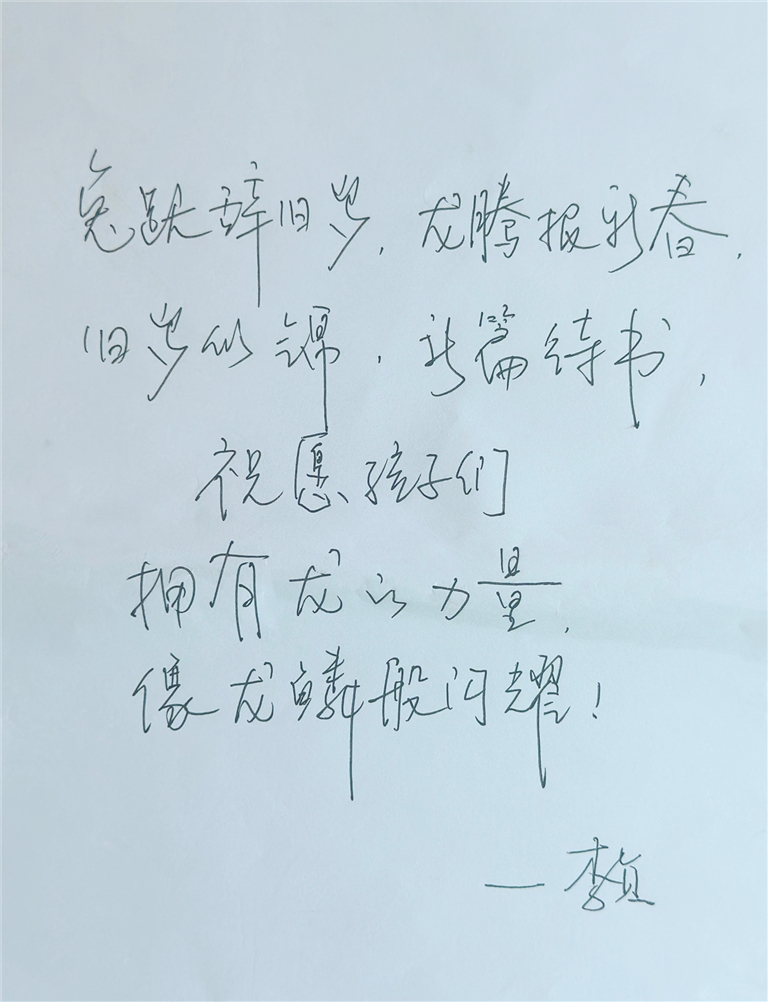 兔跃辞旧岁，龙腾报新春，
旧岁似锦，新篇待书，
祝愿孩子们
拥有龙的力量，
像龙鳞般闪耀！
—李贞